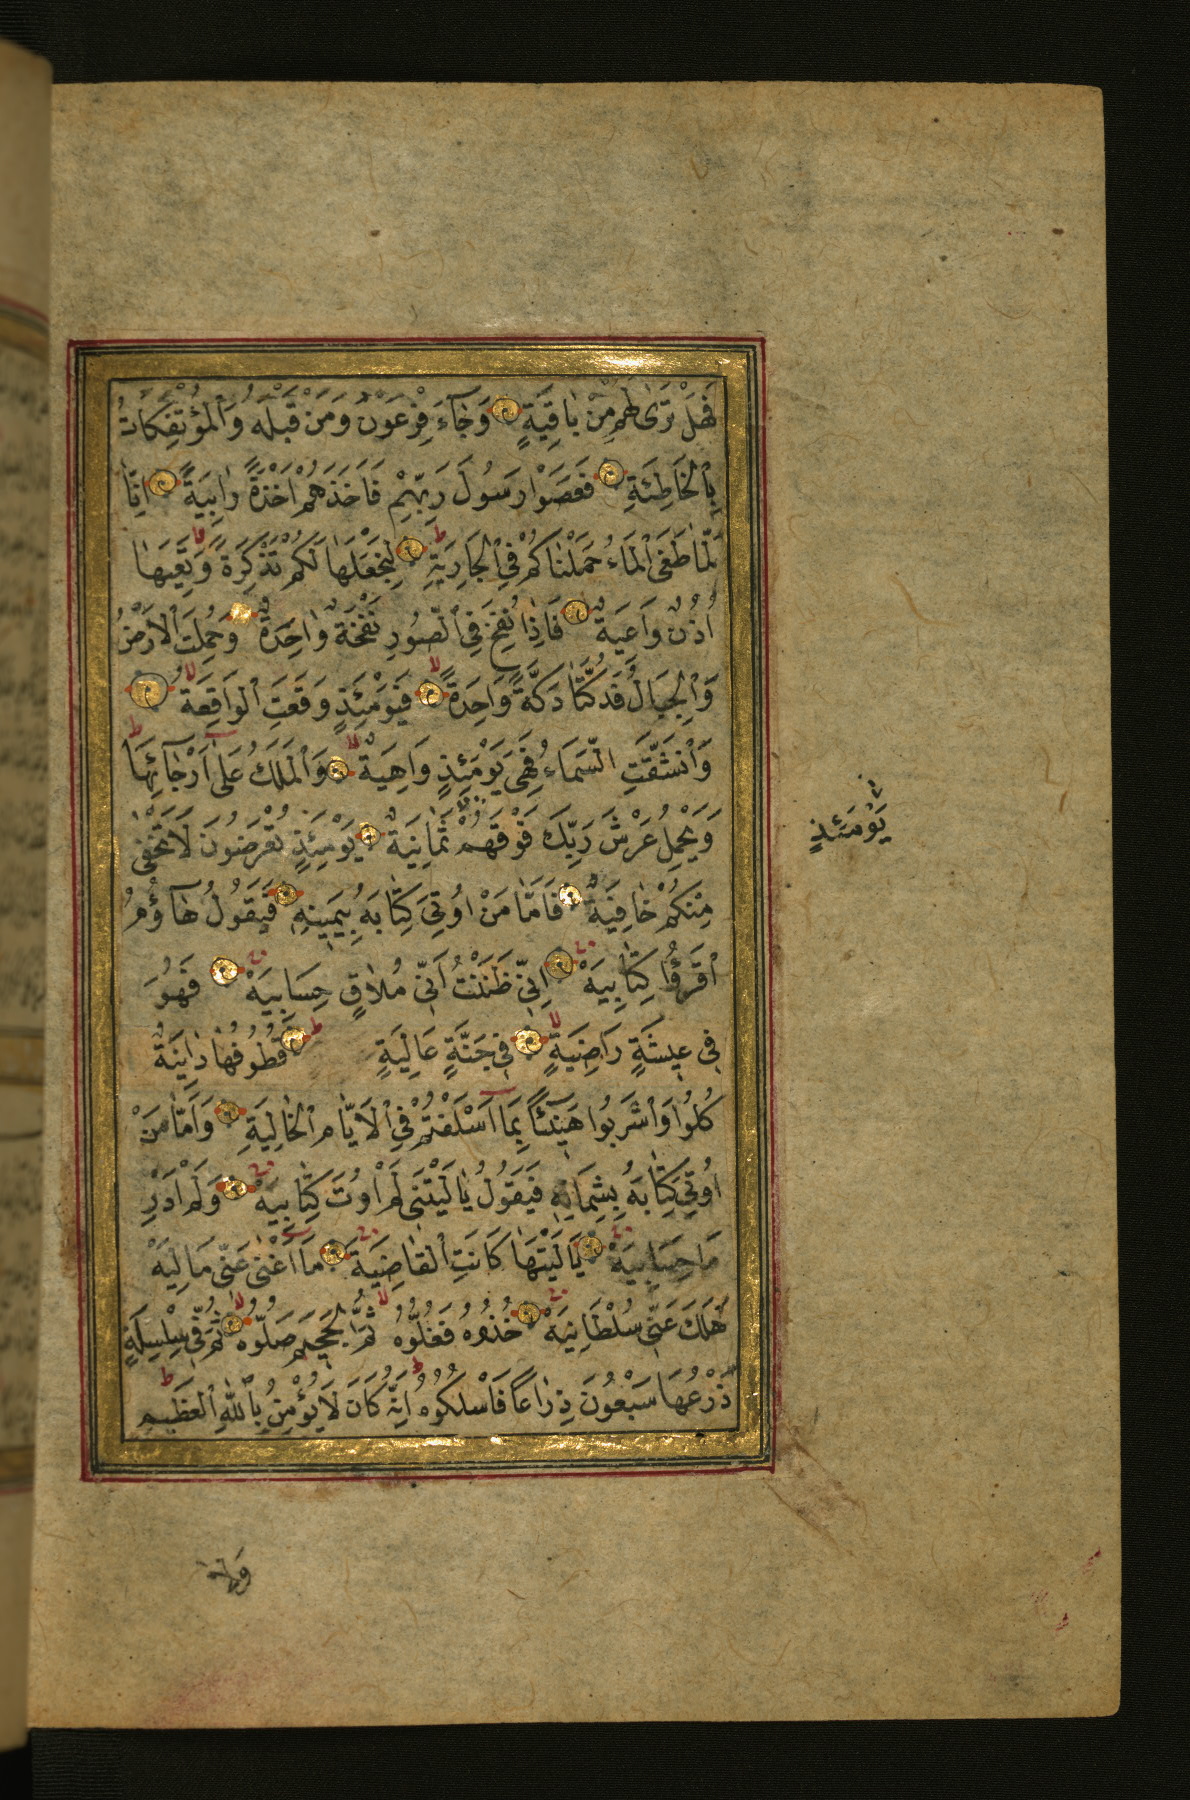 فَهَلْ تَرٰى لَهُمْ مِنْ بَاقِيَةٍ وَجَآءَ فِرْعَوْنُ وَمَنْ قَبْلَهُ وَالْمُؤْتَفِكَاتُ
بِالْخَاطِئَةِ فَعَصَوْا رَسُولَ رَبِّهِمْ فَاَخَذَهُمْ اَخْذَةً رَابِيَةً اِنَّا
لَمَّا طَغَى الْمَآءُ حَمَلْنَاكُمْ فِي الْجَارِيَةِ لِنَجْعَلَهَا لَكُمْ تَذْكِرَةً وَتَعِيَهَا
اُذُنٌ وَاعِيَةٌ فَاِذَا نُفِخَ فِي الصُّورِ نَفْخَةٌ وَاحِدَةٌ وَحُمِلَتِ الْاَرْضُ
وَالْجِبَالُ فَدُكَّتَا دَكَّةً وَاحِدَةً فَيَوْمَئِذٍ وَقَعَتِ الْوَاقِعَةُ
وَانْشَقَّتِ السَّمَاءُ فَهِيَ يَوْمَئِذٍ وَاهِيَةٌ وَالْمَلَكُ عَلٰى اَرْجَآئِهَا
وَيَحْمِلُ عَرْشَ رَبِّكَ فَوْقَهُمْ ثَمَانِيَةٌ يَوْمَئِذٍ تُعْرَضُونَ لَا تَخْفٰى
يَوْمَئِذٍ
مِنْكُمْ خَافِيَةٌ فَاَمَّا مَنْ اُوتِيَ كِتَابَهُ بِيَمِينِهِ فَيَقُولُ هَآؤُمُ
اقْرَؤُا كِتَابِيَهْ اِنِّي ظَنَنْتُ اَنِّي مُلَاقٍ حِسَابِيَهْ فَهُوَ
فِي عِيشَةٍ رَاضِيَةٍ فِي جَنَّةٍ عَالِيَةٍ قُطُوفُهَا دَانِيَةٌ
كُلُوا وَاشْرَبُوا هَنِيئًا بِمَا اَسْلَفْتُمْ فِي الْاَيَّامِ الْخَالِيَةِ وَاَمَّا مَنْ
اُوتِيَ كِتَابَهُ بِشِمَالِهِ فَيَقُولُ يَا لَيْتَنِي لَمْ اُوتَ كِتَابِيَهْ وَلَمْ اَدْرِ
مَا حِسَابِيَهْ يَا لَيْتَهَا كَانَتِ الْقَاضِيَةَ مَا اَغْنٰى عَنِّي مَالِيَهْ
هَلَكَ عَنِّي سُلْطَانِيَهْ خُذُوهُ فَغُلُّوهُ ثُمَّ الْجَحِيمَ صَلُّوهُ ثُمَّ فِي سِلْسِلَةٍ
ذَرْعُهَا سَبْعُونَ ذِرَاعًا فَاسْلُكُوهُ اِنَّهُ كَانَ لَا يُؤْمِنُ بِاللّٰهِ الْعَظِيمِ
وَلَا